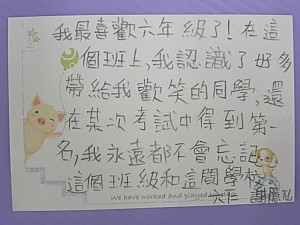 我最喜歡六年級了!在這
個班上,我認識了好多
帶給我歡笑的同學,還
在某次考試中得到第一
名,我永遠都不會忘記
這個班級和這間學校
We have worked and played together
六仁 謝